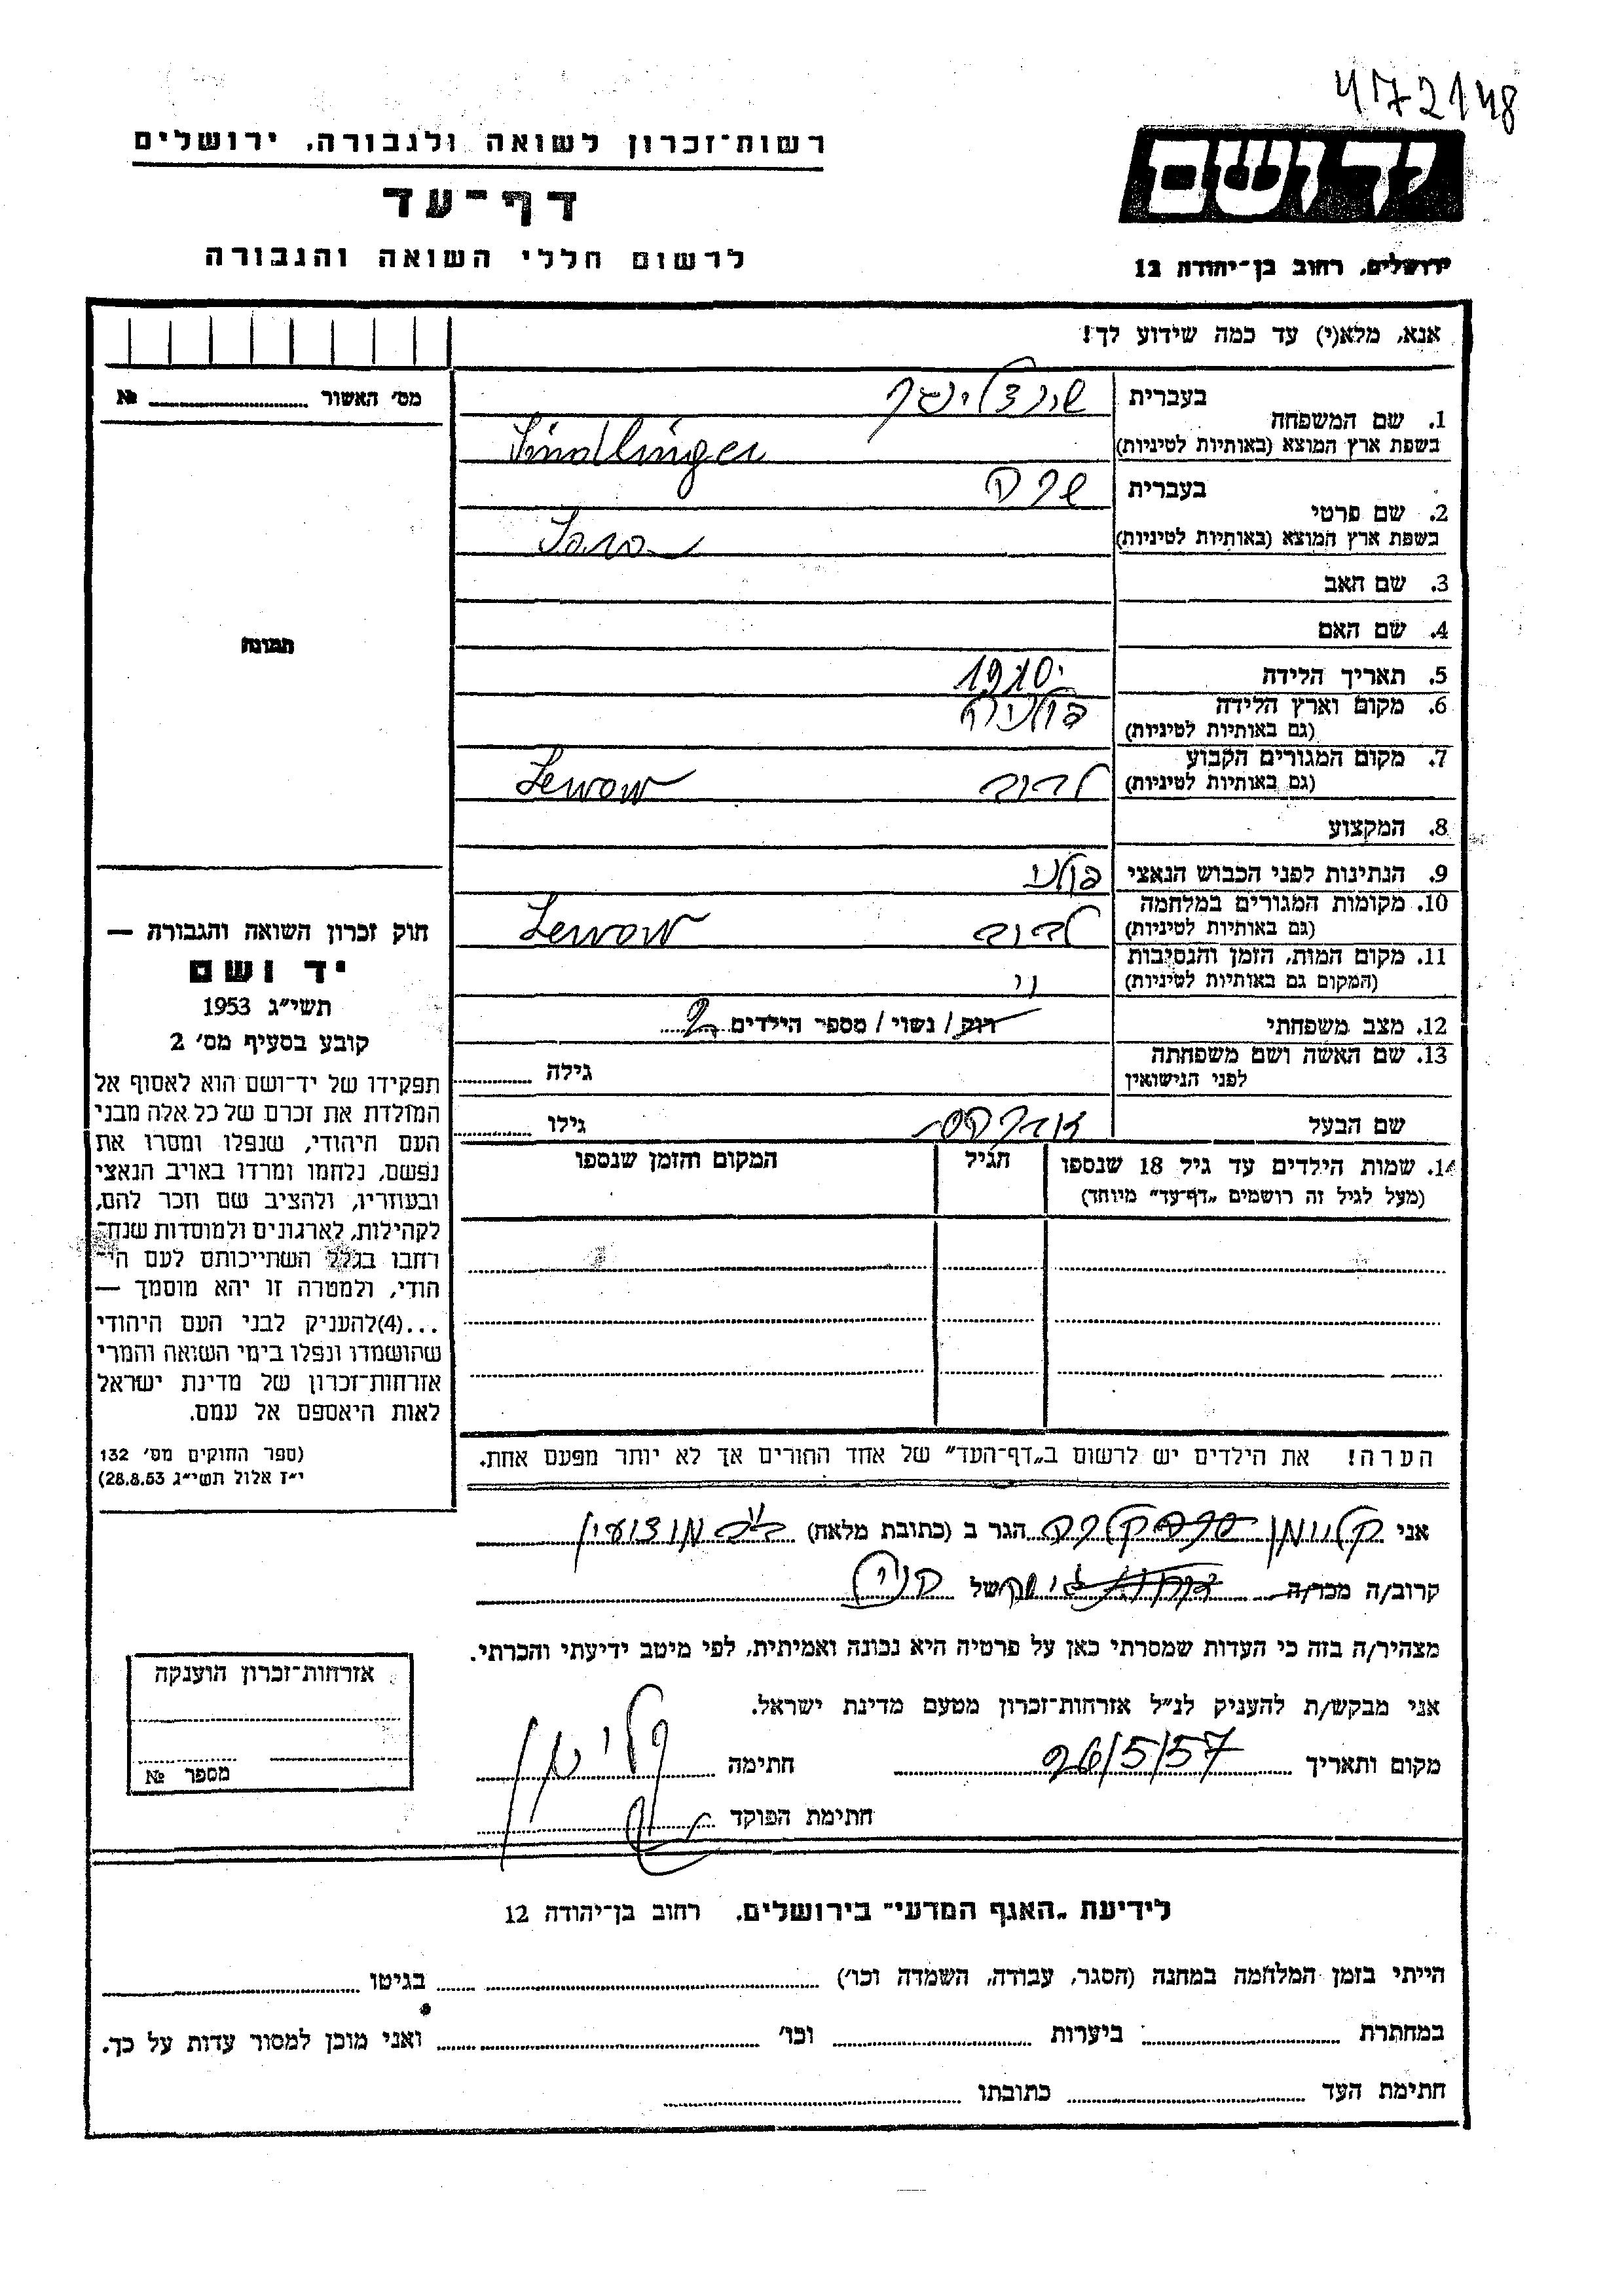 472148
רשות־זכרון לשואה ולגבורה, ירושלים
דף־עד
לרשום חללי השואה והגבורה
יד ושם
ירושלים, רחוב בן־יהודה 12
אנא, מלא(י) עד כמה שידוע לך!
מס׳ האשור №
תמונה
1. שם המשפחה
בעברית
בשפת ארץ המוצא (באותיות לטיניות) Sindlinger
2. שם פרטי
בעברית שרה
בשפת ארץ המוצא (באותיות לטיניות) Sara
3. שם האב
4. שם האם
5. תאריך הלידה 1910
6. מקום וארץ הלידה פולניה
(גם באותיות לטיניות)
7. מקום המגורים הקבוע
(גם באותיות לטיניות) לבוב Lewow
8. המקצוע
9. הנתינות לפני הכבוש הנאצי פולני
10. מקומות המגורים במלחמה
(גם באותיות לטיניות) לבוב Lewow
11. מקום המות, הזמן והנסיבות
(המקום גם באותיות לטיניות)
12. מצב משפחתי רוק / נשוי / מספר הילדים 2
13. שם האשה ושם משפחתה
לפני הנישואין גילה
שם הבעל גילו
14. שמות הילדים עד גיל 18 שנספו הגיל המקום והזמן שנספו
(מעל לגיל זה רושמים „דף־עד״ מיוחד)
הערה! את הילדים יש לרשום ב„דף־העד״ של אחד ההורים אך לא יותר מפעם אחת.
חוק זכרון השואה והגבורה —
יד ושם
תשי״ג 1953
קובע בסעיף מס׳ 2
תפקידו של יד־ושם הוא לאסוף אל
המולדת את זכרם של כל אלה מבני
העם היהודי, שנפלו ומסרו את
נפשם, נלחמו ומרדו באויב הנאצי
ובעוזריו, ולהציב שם וזכר להם,
לקהילות, לארגונים ולמוסדות שנח־
רחבו בגלל השתייכותם לעם הי־
הודי, ולמטרה זו יהא מוסמך —
...(4)להעניק לבני העם היהודי
שהושמדו ונפלו בימי השואה והמרי
אזרחות־זכרון של מדינת ישראל
לאות היאספם אל עמם.
(ספר החוקים מס׳ 132
י״ז אלול תשי״ג 28.8.53)
אני הגר ב (כתובת מלאה)
קרוב/ה מכר/ה של
מצהיר/ה בזה כי העדות שמסרתי כאן על פרטיה היא נכונה ואמיתית, לפי מיטב ידיעתי והכרתי.
אני מבקש/ת להעניק לנ״ל אזרחות־זכרון מטעם מדינת ישראל.
מקום ותאריך 26/5/57 חתימה
חתימת הפוקד
אזרחות־זכרון הוענקה
מספר №
לידיעת „האגף המדעי״ בירושלים, רחוב בן־יהודה 12
הייתי בזמן המלחמה במחנה (הסגר, עבודה, השמדה וכו׳) בגיטו
במחתרת ביערות וכו׳ ואני מוכן למסור עדות על כך.
חתימת העד כתובתו